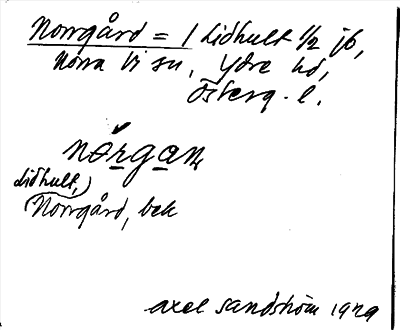 Norrgård = 1 Lidhult 1/2 jb,
Norra Vi sn, Ydre hd,
Österg. l.
nórgan
Lidhult,
Norrgård, bek
Axel Sandström 1929